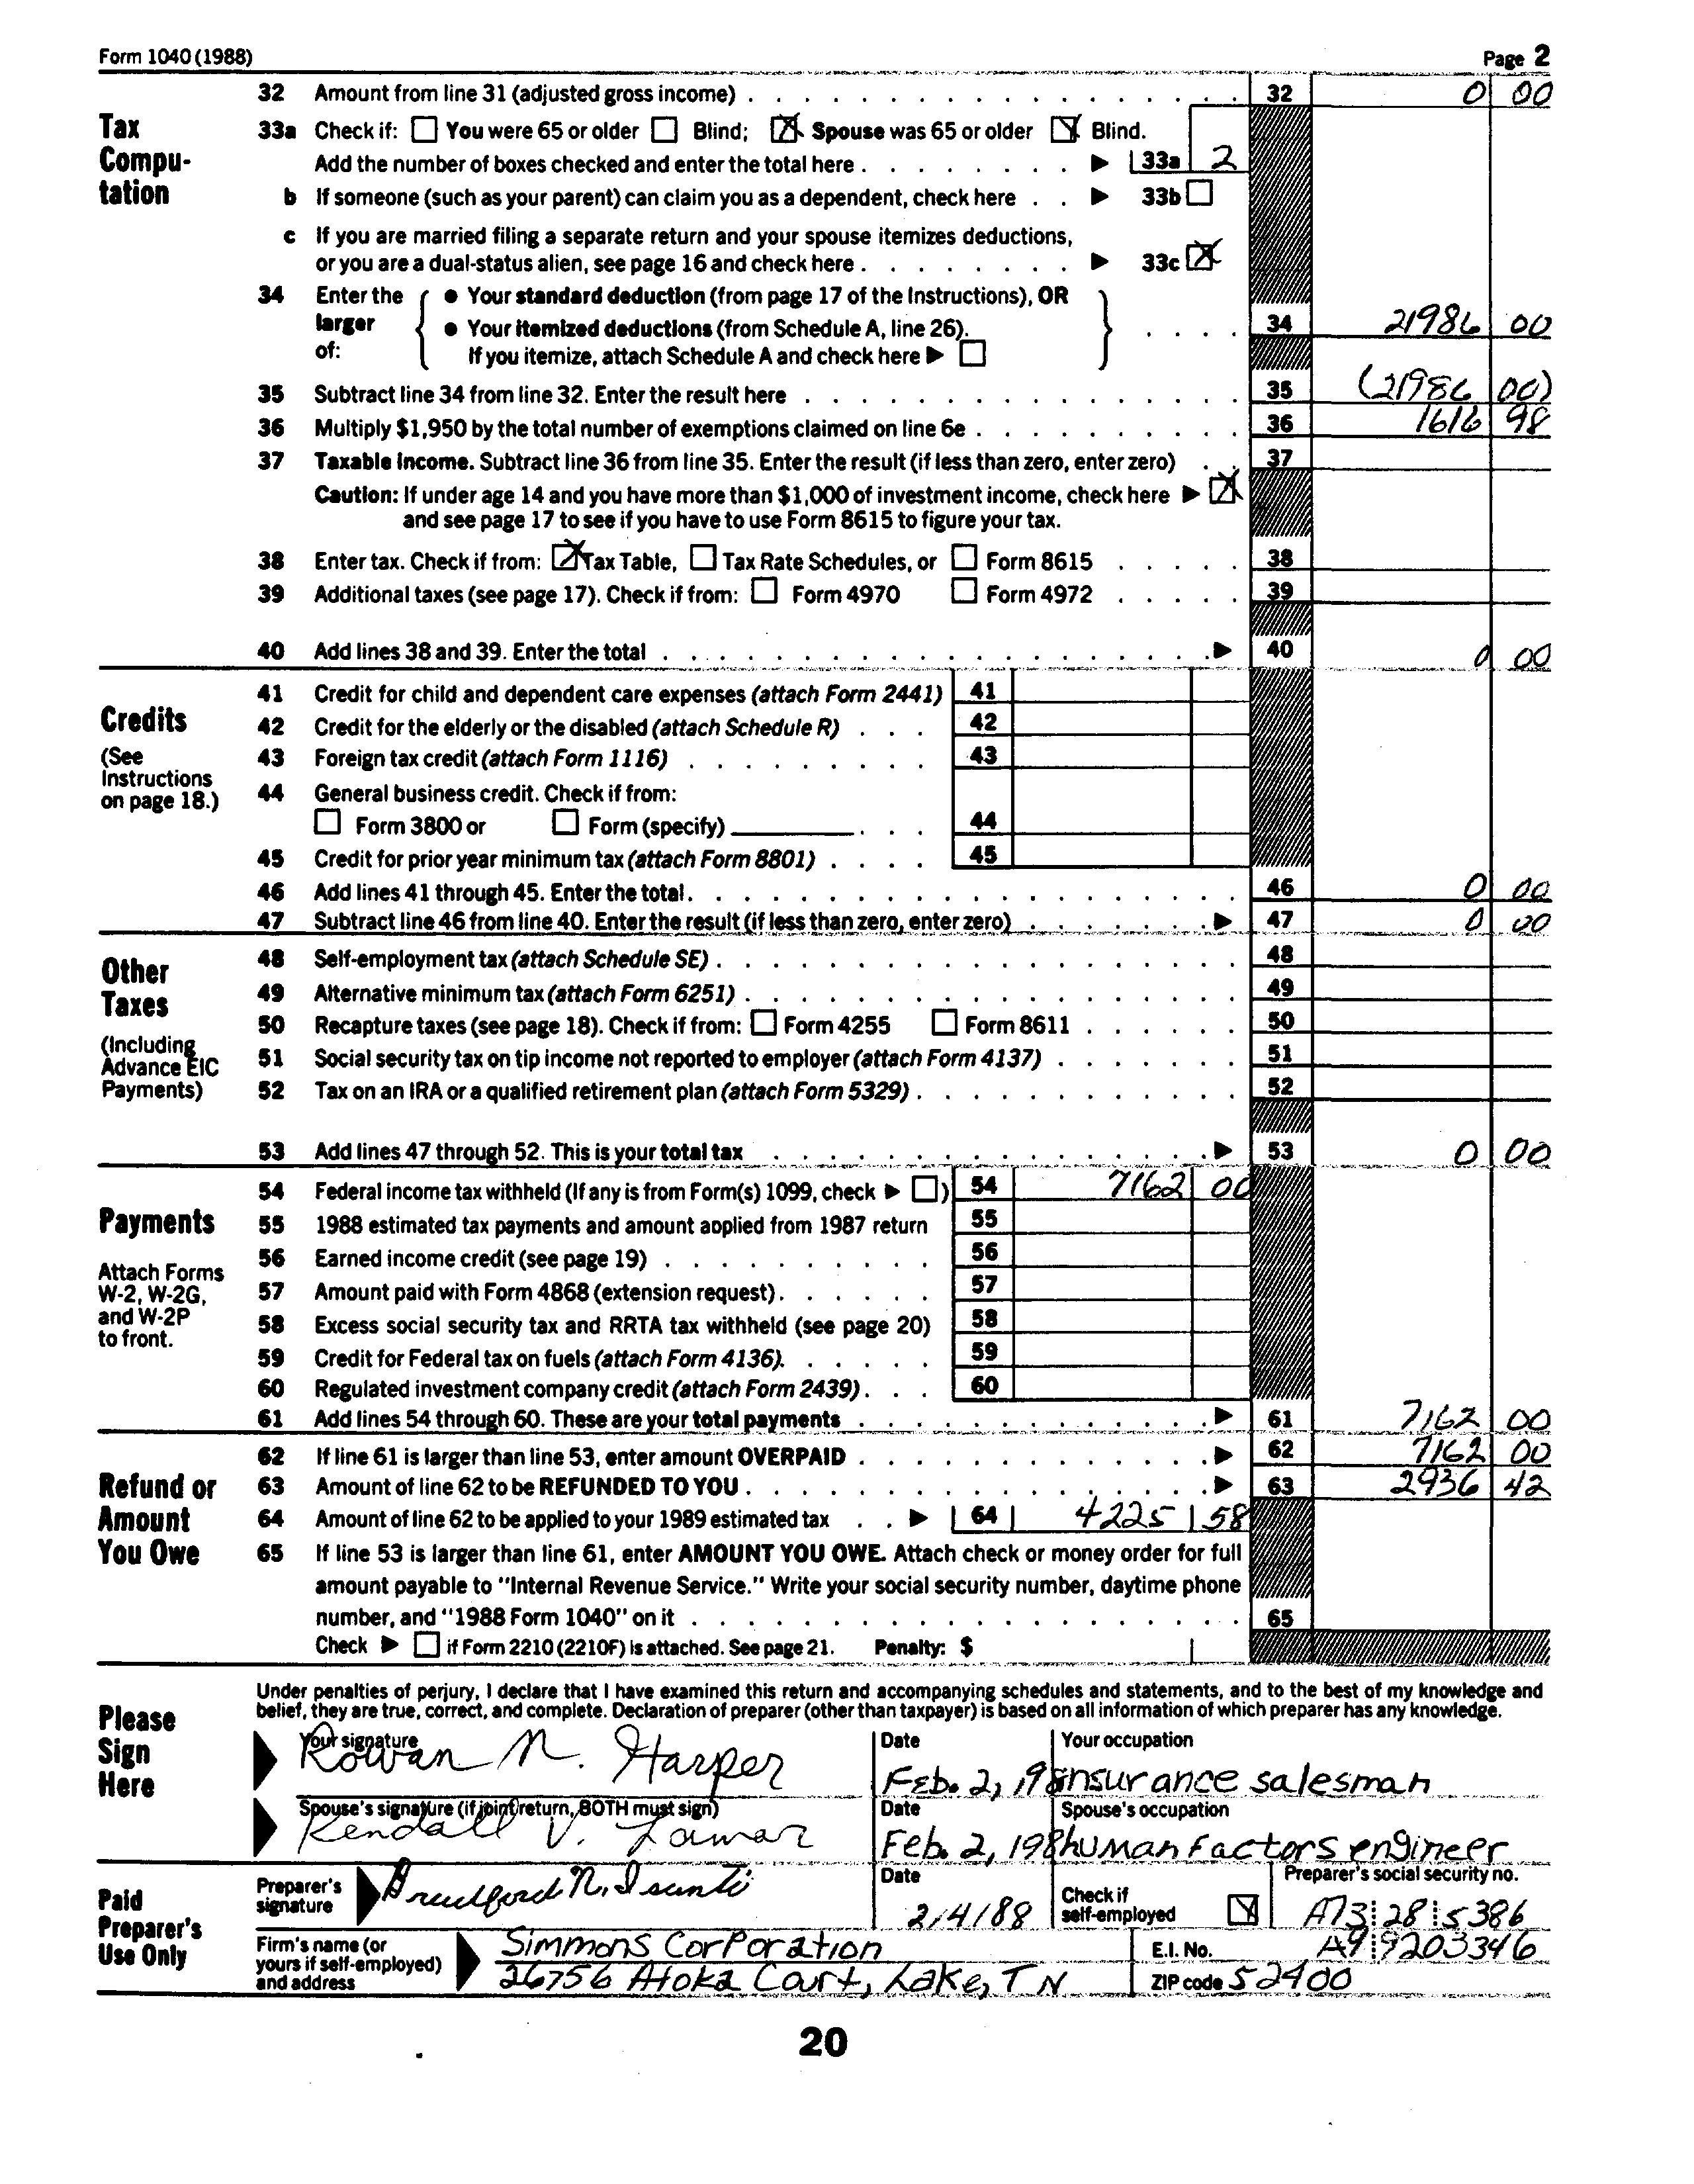 Form 1040 (1988) Page 2
32 Amount from line 31 (adjusted gross income) 32 0 00
Tax Compu- tation
33a Check if: You were 65 or older Blind; Spouse was 65 or older Blind.
Add the number of boxes checked and enter the total here 33a 2
b If someone (such as your parent) can claim you as a dependent, check here 33b
c If you are married filing a separate return and your spouse itemizes deductions,
or you are a dual-status alien, see page 16 and check here 33c
34 Enter the larger of:
• Your standard deduction (from page 17 of the Instructions), OR
• Your itemized deductions (from Schedule A, line 26). 34 21986 00
If you itemize, attach Schedule A and check here
35 Subtract line 34 from line 32. Enter the result here 35 (21986 00)
36 Multiply $1,950 by the total number of exemptions claimed on line 6e 36 1616 98
37 Taxable income. Subtract line 36 from line 35. Enter the result (if less than zero, enter zero) 37
Caution: If under age 14 and you have more than $1,000 of investment income, check here
and see page 17 to see if you have to use Form 8615 to figure your tax.
38 Enter tax. Check if from: Tax Table, Tax Rate Schedules, or Form 8615 38
39 Additional taxes (see page 17). Check if from: Form 4970 Form 4972 39
40 Add lines 38 and 39. Enter the total 40 0 00
Credits
(See Instructions on page 18.)
41 Credit for child and dependent care expenses (attach Form 2441) 41
42 Credit for the elderly or the disabled (attach Schedule R) 42
43 Foreign tax credit (attach Form 1116) 43
44 General business credit. Check if from:
Form 3800 or Form (specify) 44
45 Credit for prior year minimum tax (attach Form 8801) 45
46 Add lines 41 through 45. Enter the total. 46 0 00
47 Subtract line 46 from line 40. Enter the result (if less than zero, enter zero) 47 0 00
Other Taxes
(Including Advance EIC Payments)
48 Self-employment tax (attach Schedule SE) 48
49 Alternative minimum tax (attach Form 6251) 49
50 Recapture taxes (see page 18). Check if from: Form 4255 Form 8611 50
51 Social security tax on tip income not reported to employer (attach Form 4137) 51
52 Tax on an IRA or a qualified retirement plan (attach Form 5329) 52
53 Add lines 47 through 52. This is your total tax 53 0 00
Payments
Attach Forms W-2, W-2G, and W-2P to front.
54 Federal income tax withheld (If any is from Form(s) 1099, check ) 54 7162 00
55 1988 estimated tax payments and amount applied from 1987 return 55
56 Earned income credit (see page 19) 56
57 Amount paid with Form 4868 (extension request) 57
58 Excess social security tax and RRTA tax withheld (see page 20) 58
59 Credit for Federal tax on fuels (attach Form 4136). 59
60 Regulated investment company credit (attach Form 2439) 60
61 Add lines 54 through 60. These are your total payments 61 7162 00
Refund or Amount You Owe
62 If line 61 is larger than line 53, enter amount OVERPAID 62 7162 00
63 Amount of line 62 to be REFUNDED TO YOU 63 2936 42
64 Amount of line 62 to be applied to your 1989 estimated tax 64 4225 58
65 If line 53 is larger than line 61, enter AMOUNT YOU OWE. Attach check or money order for full
amount payable to "Internal Revenue Service." Write your social security number, daytime phone
number, and "1988 Form 1040" on it 65
Check if Form 2210 (2210F) is attached. See page 21. Penalty: $
Please Sign Here
Under penalties of perjury, I declare that I have examined this return and accompanying schedules and statements, and to the best of my knowledge and
belief, they are true, correct, and complete. Declaration of preparer (other than taxpayer) is based on all information of which preparer has any knowledge.
Your signature Date Your occupation
Rowan N. Harper Feb. 2, 198 insurance salesman
Spouse's signature (if joint return, BOTH must sign) Date Spouse's occupation
Kendall V. Lamar Feb. 2, 198 human factors engineer
Paid Preparer's Use Only
Preparer's signature Bradford N. Isunti Date 2/4/88 Check if self-employed Preparer's social security no. A73 28 5386
Firm's name (or yours if self-employed) and address Simmons Corporation E.I. No. A9 9203346
26756 Atoka Court, Lake, TN ZIP code 52900
20